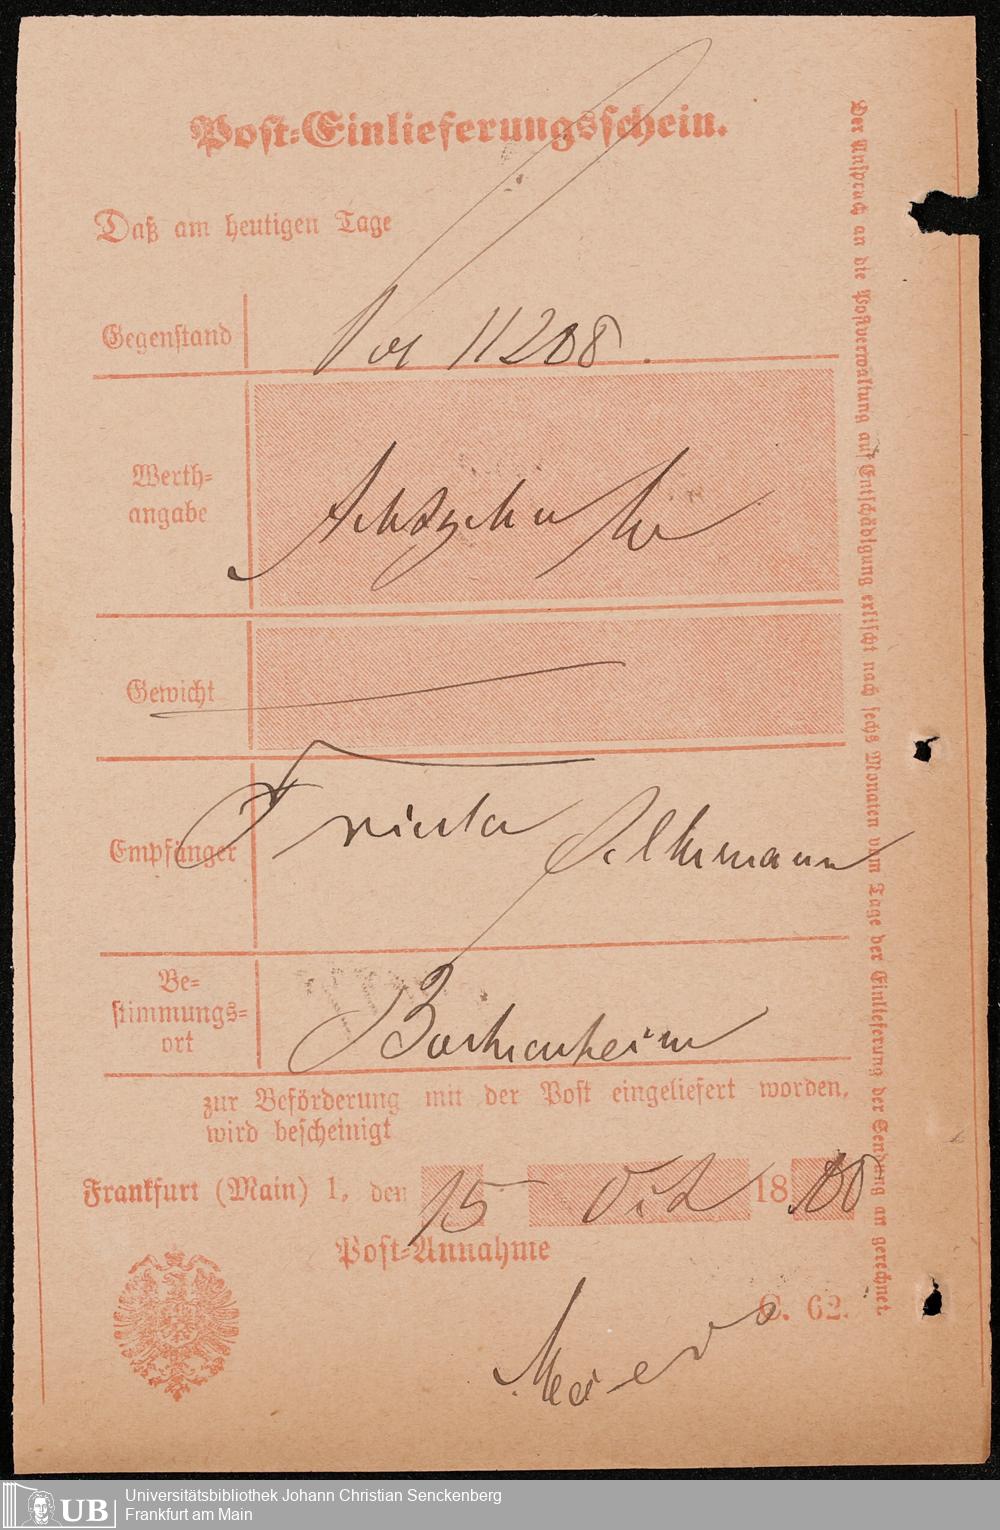 Post-Einlieferungsschein.
Daß am heutigen Tage
Gegenstand
11208.
Werth-
angabe
Achtzehn
Gewicht
Empfänger
Be-
stimmungs-
ort
Bockenheim
zur Beförderung mit der Post eingeliefert worden,
wird bescheinigt
Frankfurt (Main) 1, den 15 Oct 18
Post-Annahme
C. 62.
Der Anspruch an die Postverwaltung auf Entschädigung erlischt nach sechs Monaten vom Tage der Einlieferung der Sendung an gerechnet.
UB
Universitätsbibliothek Johann Christian Senckenberg
Frankfurt am Main